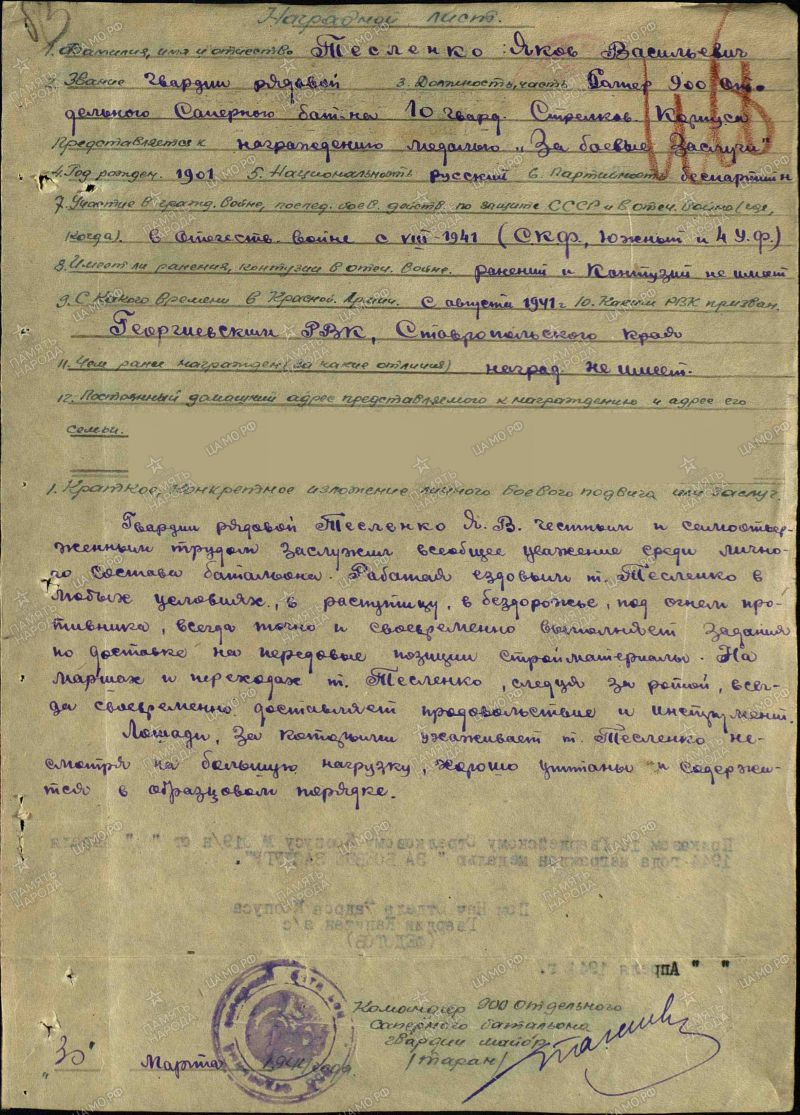 Наградной лист.
1. Фамилия, имя и отчество Тесленко Яков Васильевич
2. Звание Гвардии рядовой 3. Должность, часть Сапер 900 от-
дельного Саперного бат-на 10 гвард. Стрелков. Корпуса
Представляется к награждению медалью „За боевые Заслуги"
4. Год рожден. 1901 5. Национальность русский 6. Партийность беспартийн
7. Участие в гражд. войне, послед. боев. действ. по защите СССР и в отеч. войне (где,
когда). в Отечеств. войне с VIII-1941 (СКФ, Южный и 4 У.Ф.)
8. Имеет ли ранения, контузии в отеч. войне. ранений и Контузий не имеет
9. С какого времени в Красной Армии. с августа 1941 г 10. Каким РВК призван.
Георгиевским РВК, Ставропольского края
11. Чем ранее награжден (за какие отличия) наград не имеет.
12. Постоянный домашний адрес представляемого к награждению и адрес его
семьи.
1. Краткое, конкретное изложение личного боевого подвига или заслуг.
Гвардии рядовой Тесленко Я. В. честным и самоотвер-
женным трудом заслужил всеобщее уважение среди лично-
го состава батальона. Работая ездовым т. Тесленко в
любых условиях, в распутицу, в бездорожье, под огнем про-
тивника, всегда точно и своевременно выполняет задания
по доставке на передовые позиции стройматериалы. На
маршах и переходах т. Тесленко, следуя за ротой, всег-
да своевременно доставляет продовольствие и инструмент.
Лошади, за которыми ухаживает т. Тесленко не-
смотря на большую нагрузку, хорошо упитаны и содержа-
тся в образцовом порядке.
Приказом 10 Гвардейскому Стрелковому Корпусу № 019/н от " " апреля
1944 года награжден медалью " ЗА БОЕВЫЕ ЗАСЛУГИ".
Пом Нач Отдела Кадров Корпуса
Гвардии Капитан а/с
(ФЕДОТОВ)
" " Апреля 1944 г.
Командир 900 Отдельного
Саперного батальона
гвардии майор
(Таран)
"30" Марта 1944 года.
ПАМЯТЬ НАРОДА
ЦАМО.РФ